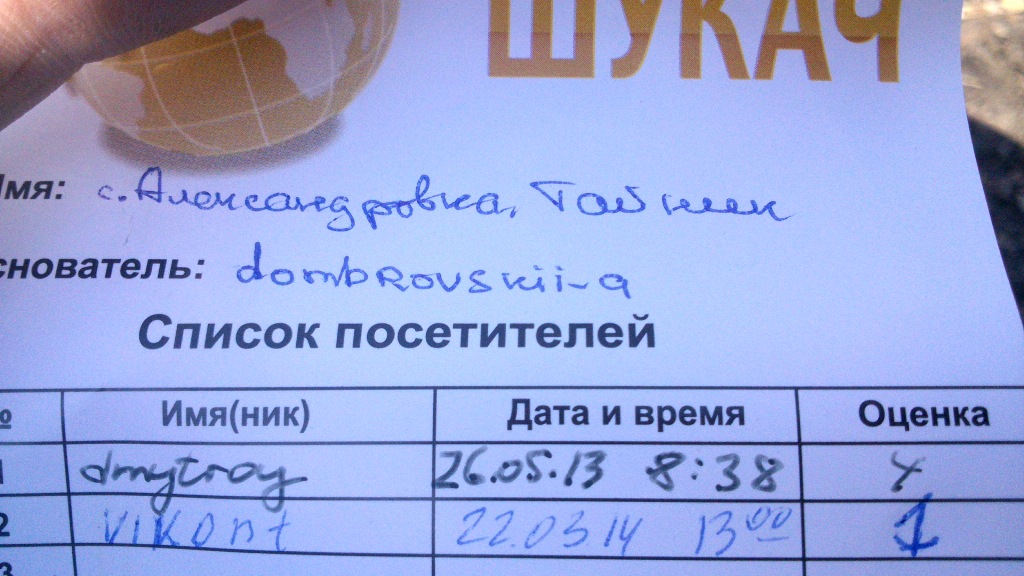 ШУКАЧ
Имя: с. Александровка, Тайник
Основатель: dombrovskii-a
Список посетителей
№ Имя(ник) Дата и время Оценка
1 dmytroy 26.05.13 8:38
2 vikont 22.03.14 13 00 1
3